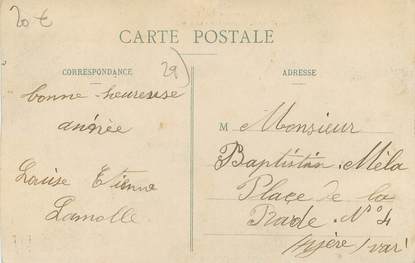 20 €
CARTE POSTALE
CORRESPONDANCE
29)
ADRESSE
bonne heureuse
année
Louise Etienne
Lamolle
M Monsieur
Baptistin Méla
Plaçe de la
Rade N° 4
Hyère / var